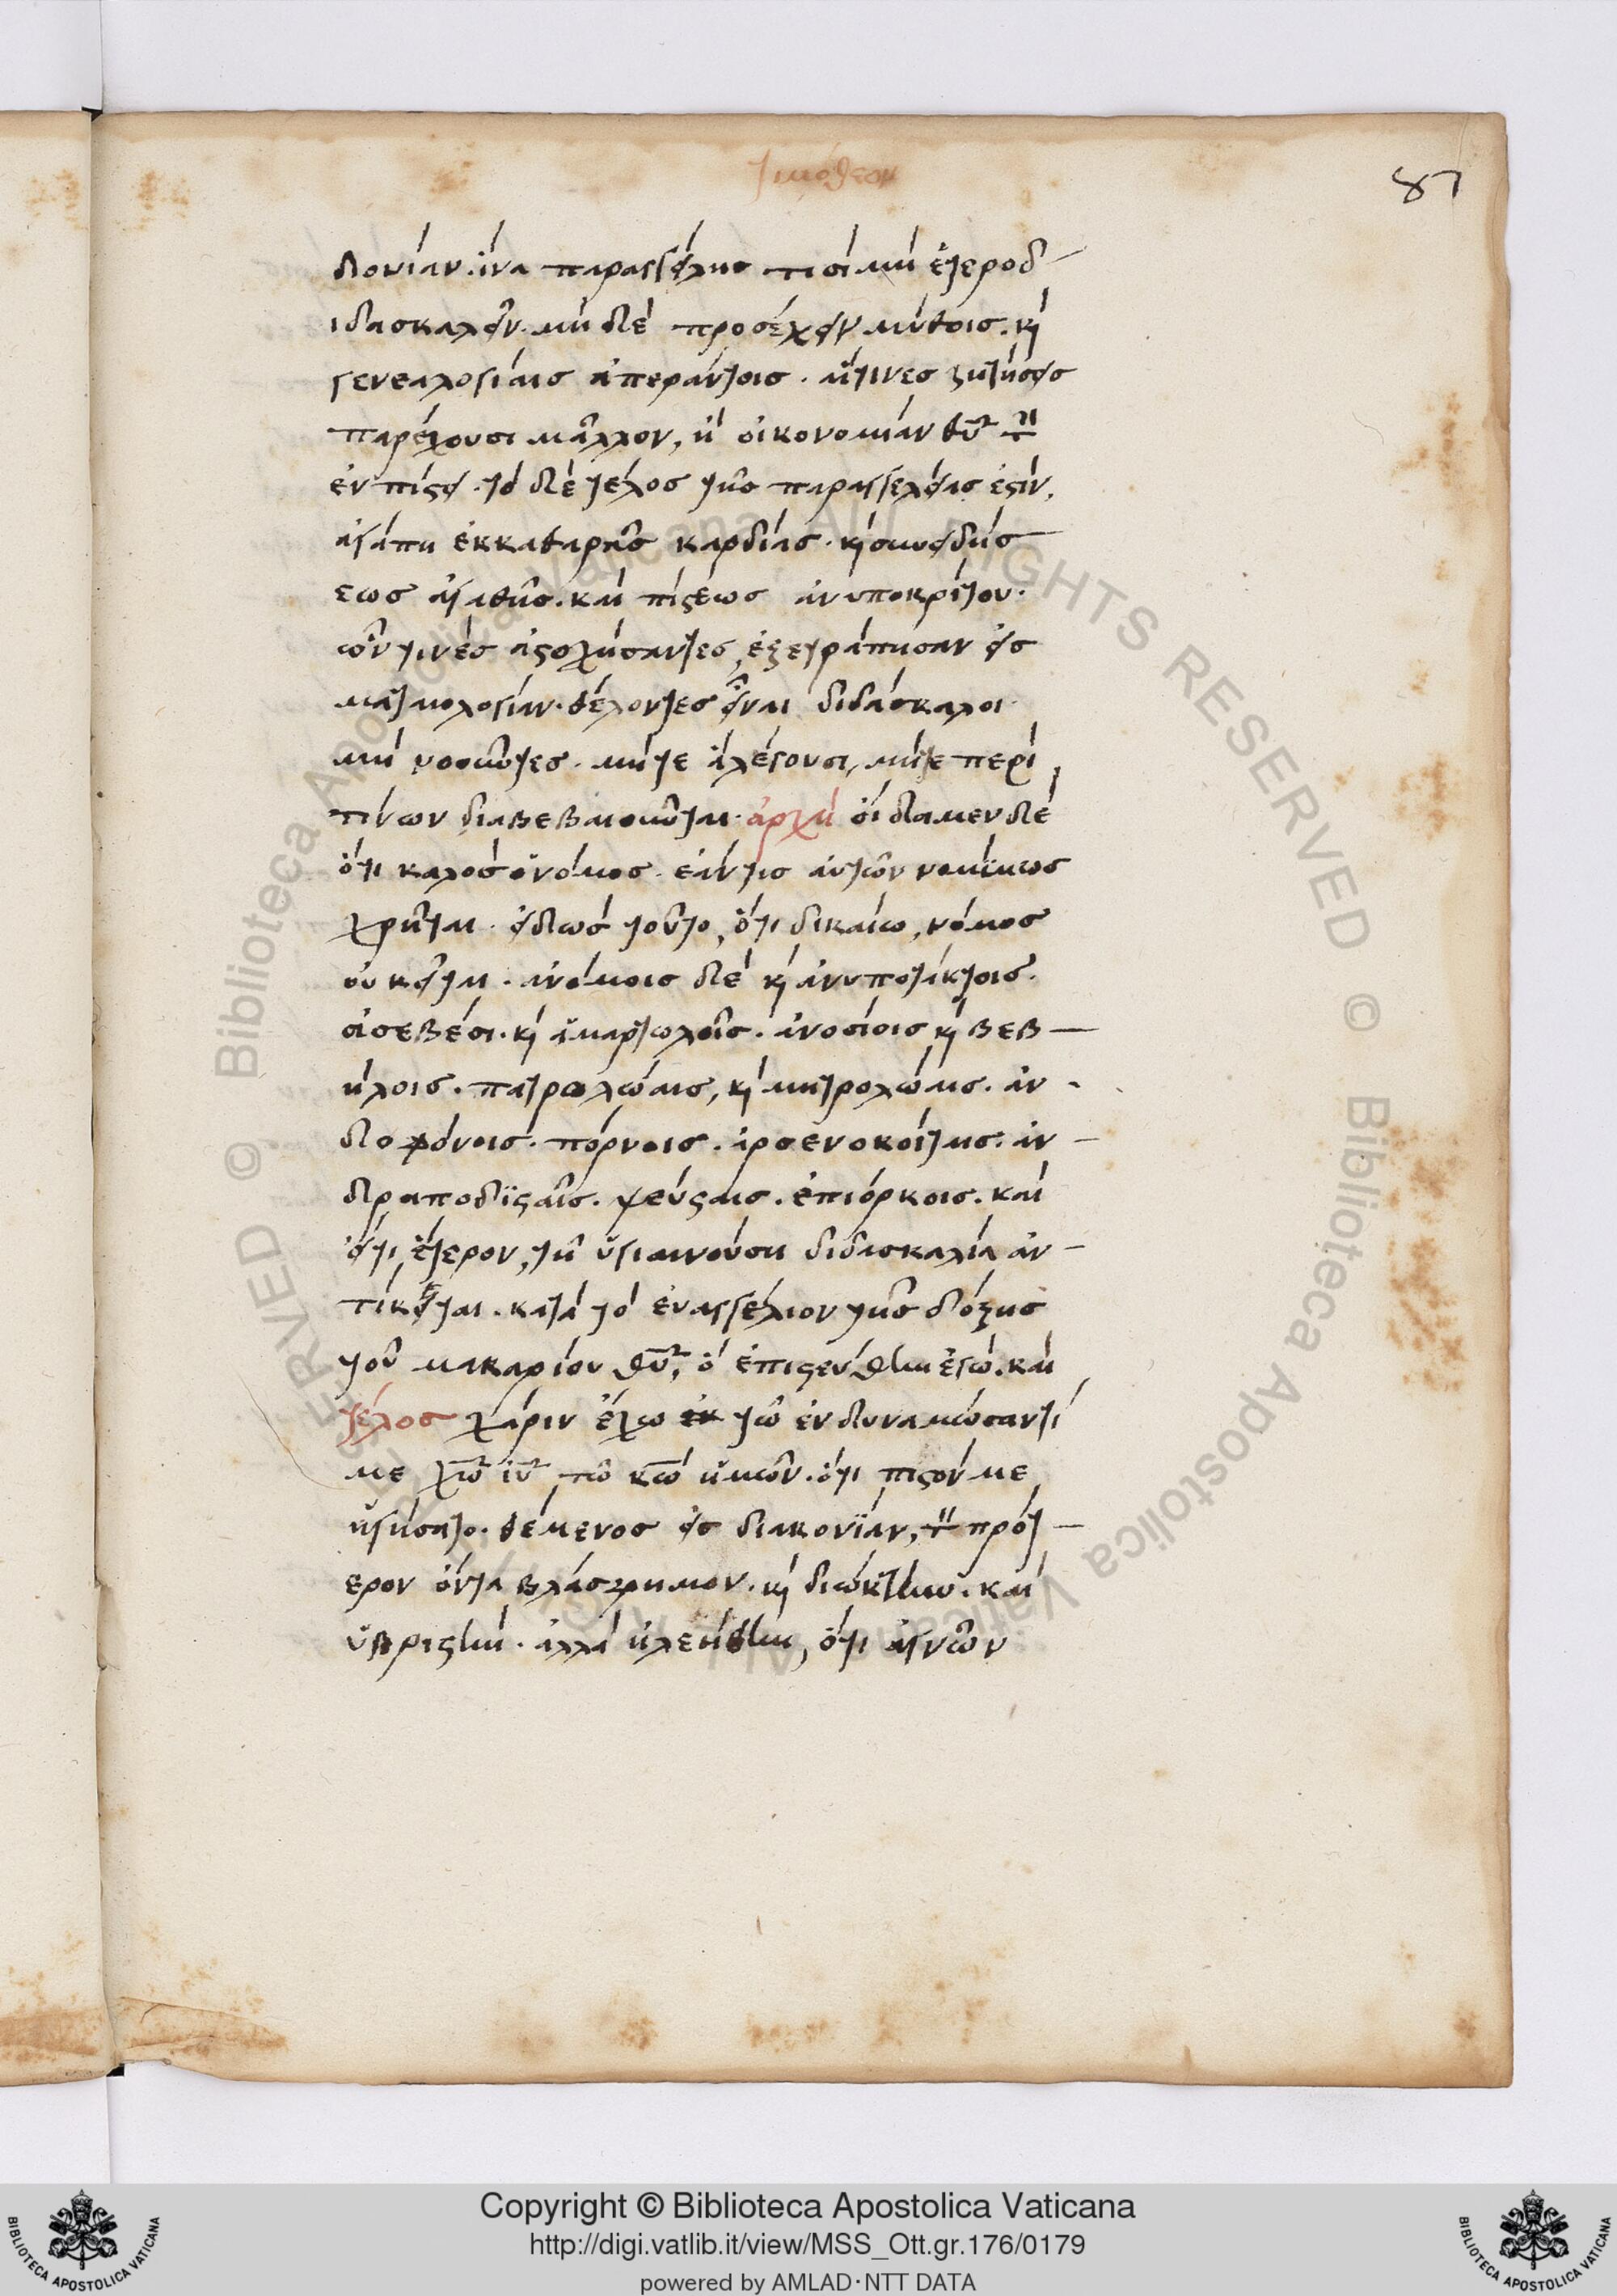 Τιμόθεον
87
δονίαν. ἵνα παραγγείλης τισὶ μὴ ἑτεροδ-
ιδασκαλεῖν. μὴ δὲ προσέχειν μύθοις. κὶ
γενεαλογίαις ἀπεράντοις. αἵτινες ζητήσεις
παρέχουσι μᾶλλον, ἢ οἰκονομίαν θυ τὴ
ἐν πίστει. τὸ δὲ τέλος τῆς παραγγελείας ἐστὶν,
ἀγάπη ἐκκαθαρᾶς καρδίας. κὶ συνειδήσ
εως ἀγαθῆς. καὶ πίστεως ἀνυποκρίτου.
ὧν τινὲς ἀστοχήσαντες, ἐξετράπησαν εἰς
ματαιολογίαν. θέλοντες εἶναι διδάσκαλοι.
μὴ νοοῦντες. μήτε ἃ λέγουσι, μήτε περὶ
τίνων διαβεβαιοῦνται. ἀρχὴ οἴδαμεν δὲ
ὅτι καλὸς ὁ νόμος. ἐάν τις αὐτῶν νομίμως
χρῆται. εἰδὼς τοῦτο, ὅτι δικαίω, νόμος
οὐ κεῖται. ἀνόμοις δὲ κὶ ἀνυποτάκτοις.
ἀσεβέσι. κὶ ἁμαρτωλοῖς. ἀνοσίοις κὶ βεβ-
ήλοις. πατρολώαις, κὶ μητρολώαις. ἀν-
δοφόνοις. πόρνοις. ἀρσενοκοίταις. ἀν-
δραποδϊσταῖς. ψεύσταις. ἐπιόρκοις. καὶ
εἴ τι ἕτερον, τῆ ὑγιαινούση διδασκαλία ἀν-
τίκειται. κατὰ τὸ εὐαγγέλιον τῆς δόξης
τοῦ μακαρίου θυ, ὃ ἐπιστεύθην ἐγώ. καὶ
τέλος χάριν ἔχω τῶ ἐνδυναμώσαντί
με χω ιυ τῶ κω ἡμῶν. ὅτι πιστόν με
ἡγήσατο. θέμενος εἰς διακονϊαν, τὴ πρότ-
ερον ὄντα βλάσφημον. κὶ διώκτην. καὶ
ὑβριστήν. ἀλλὰ ἠλεήθην, ὅτι ἀγνοῶν
Copyright © Biblioteca Apostolica Vaticana
http://digi.vatlib.it/view/MSS_Ott.gr.176/0179
powered by AMLAD·NTT DATA